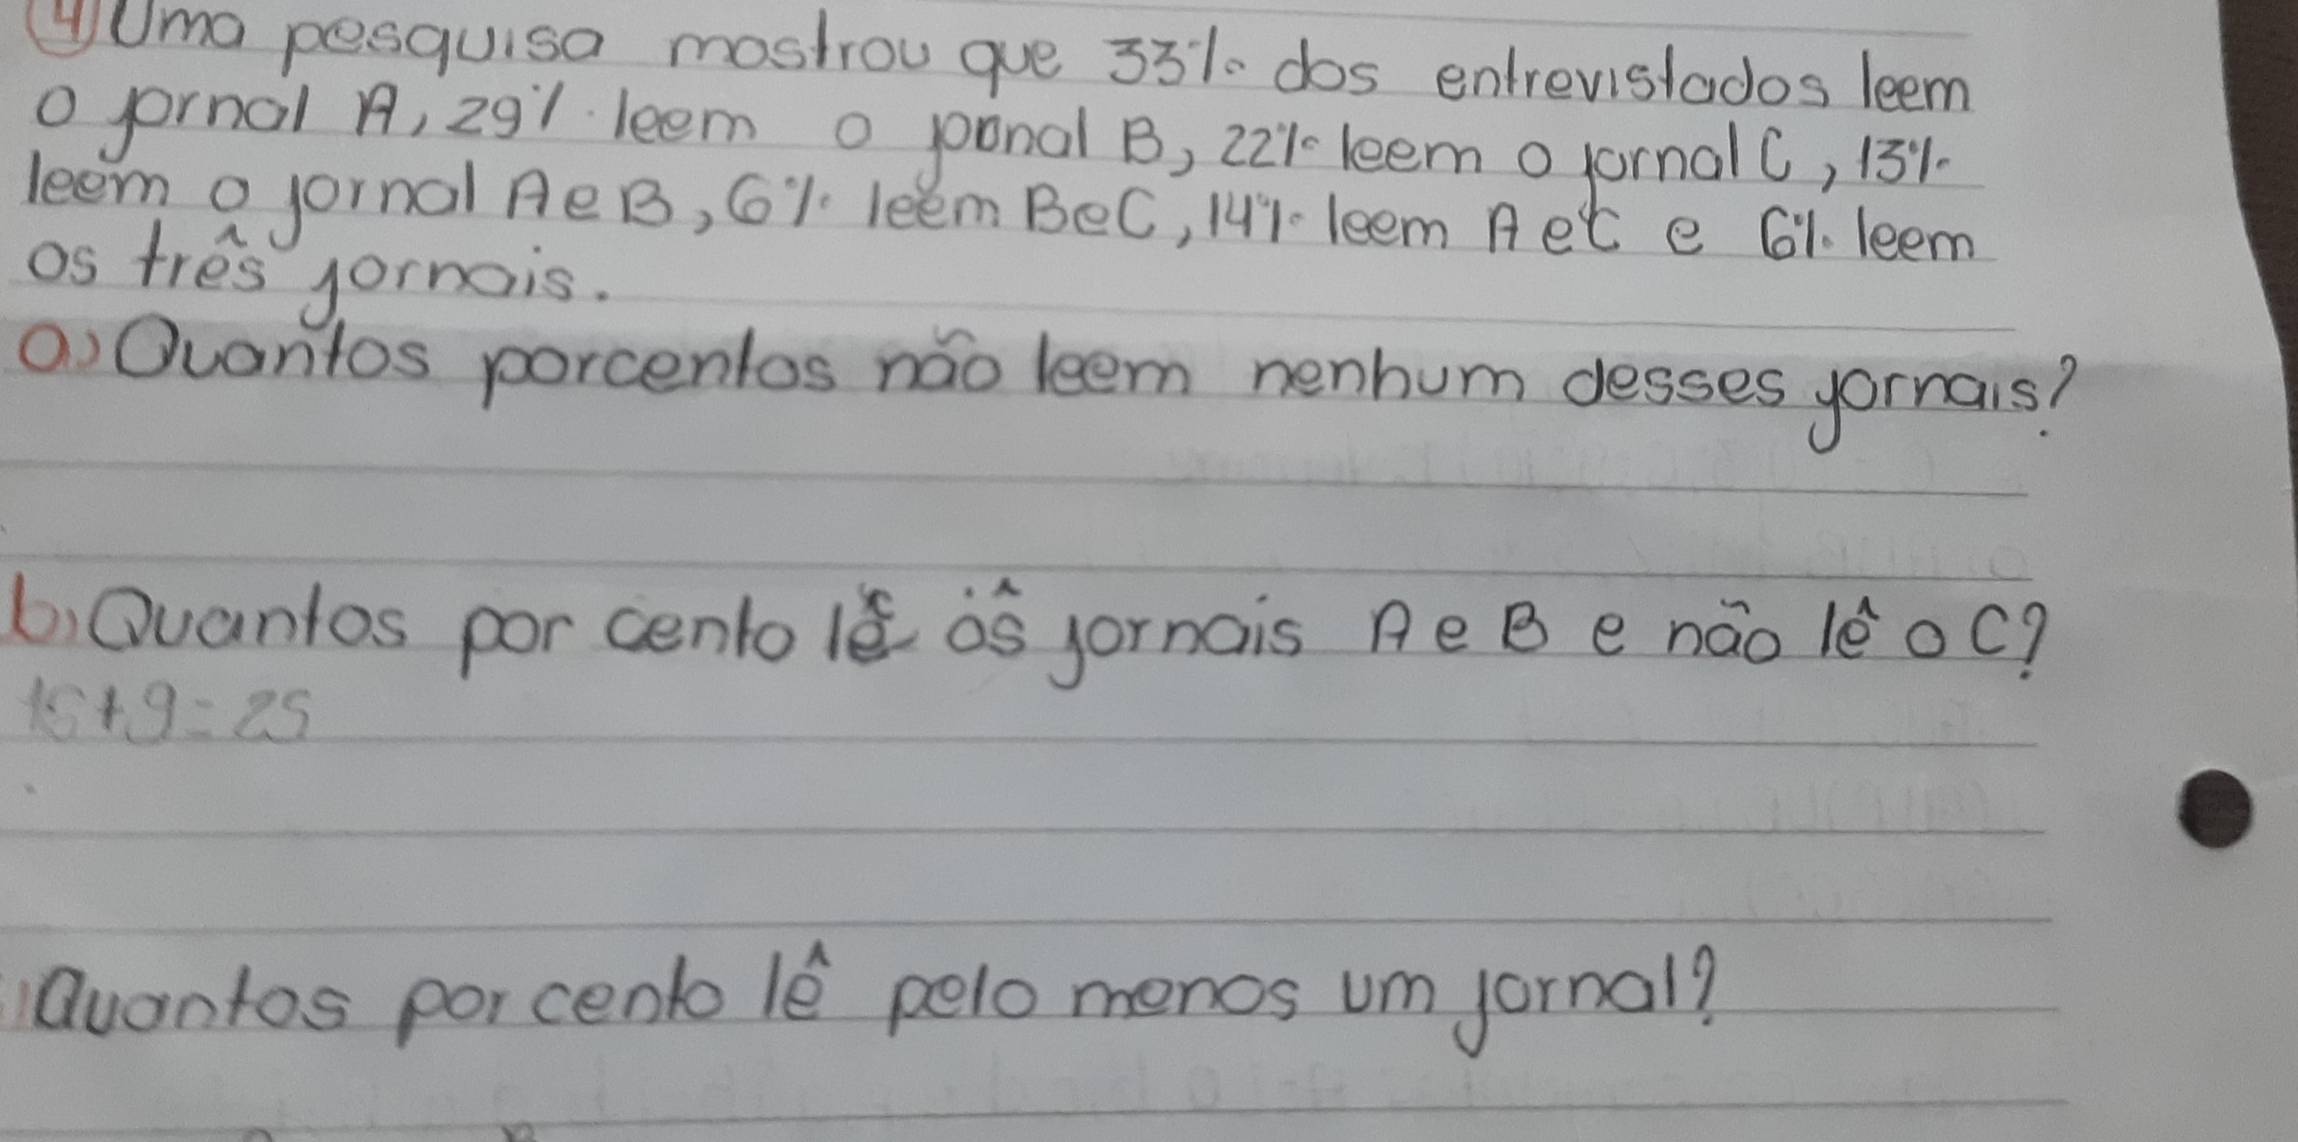 4 Uma pesquisa mostrou que 33% dos entrevistados leem
o jornal A, 29% leem o joonal B, 22% leem o jornal C, 13%
leem o jornal A e B, 6% leem B e C, 14% leem A e C e 6% leem
os três jornais.
a) Quantos porcentos não leem nenhum desses jornais?
b) Quantos por cento lê os jornais A e B e não lê o C?
+ 9 = 25
Quantos por cento lê pelo menos um jornal?